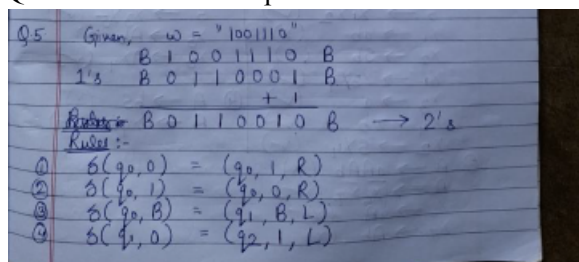 Q.5 Given, w = "1001110"
B 1 0 0 1 1 1 0 B
1's B 0 1 1 0 0 0 1 B
+ 1
B 0 1 1 0 0 1 0 B → 2's
Rules :-
① δ(q0, 0) = (q0, 1, R)
② δ(q0, 1) = (q0, 0, R)
③ δ(q0, B) = (q1, B, L)
④ δ(q1, 0) = (q2, 1, L)